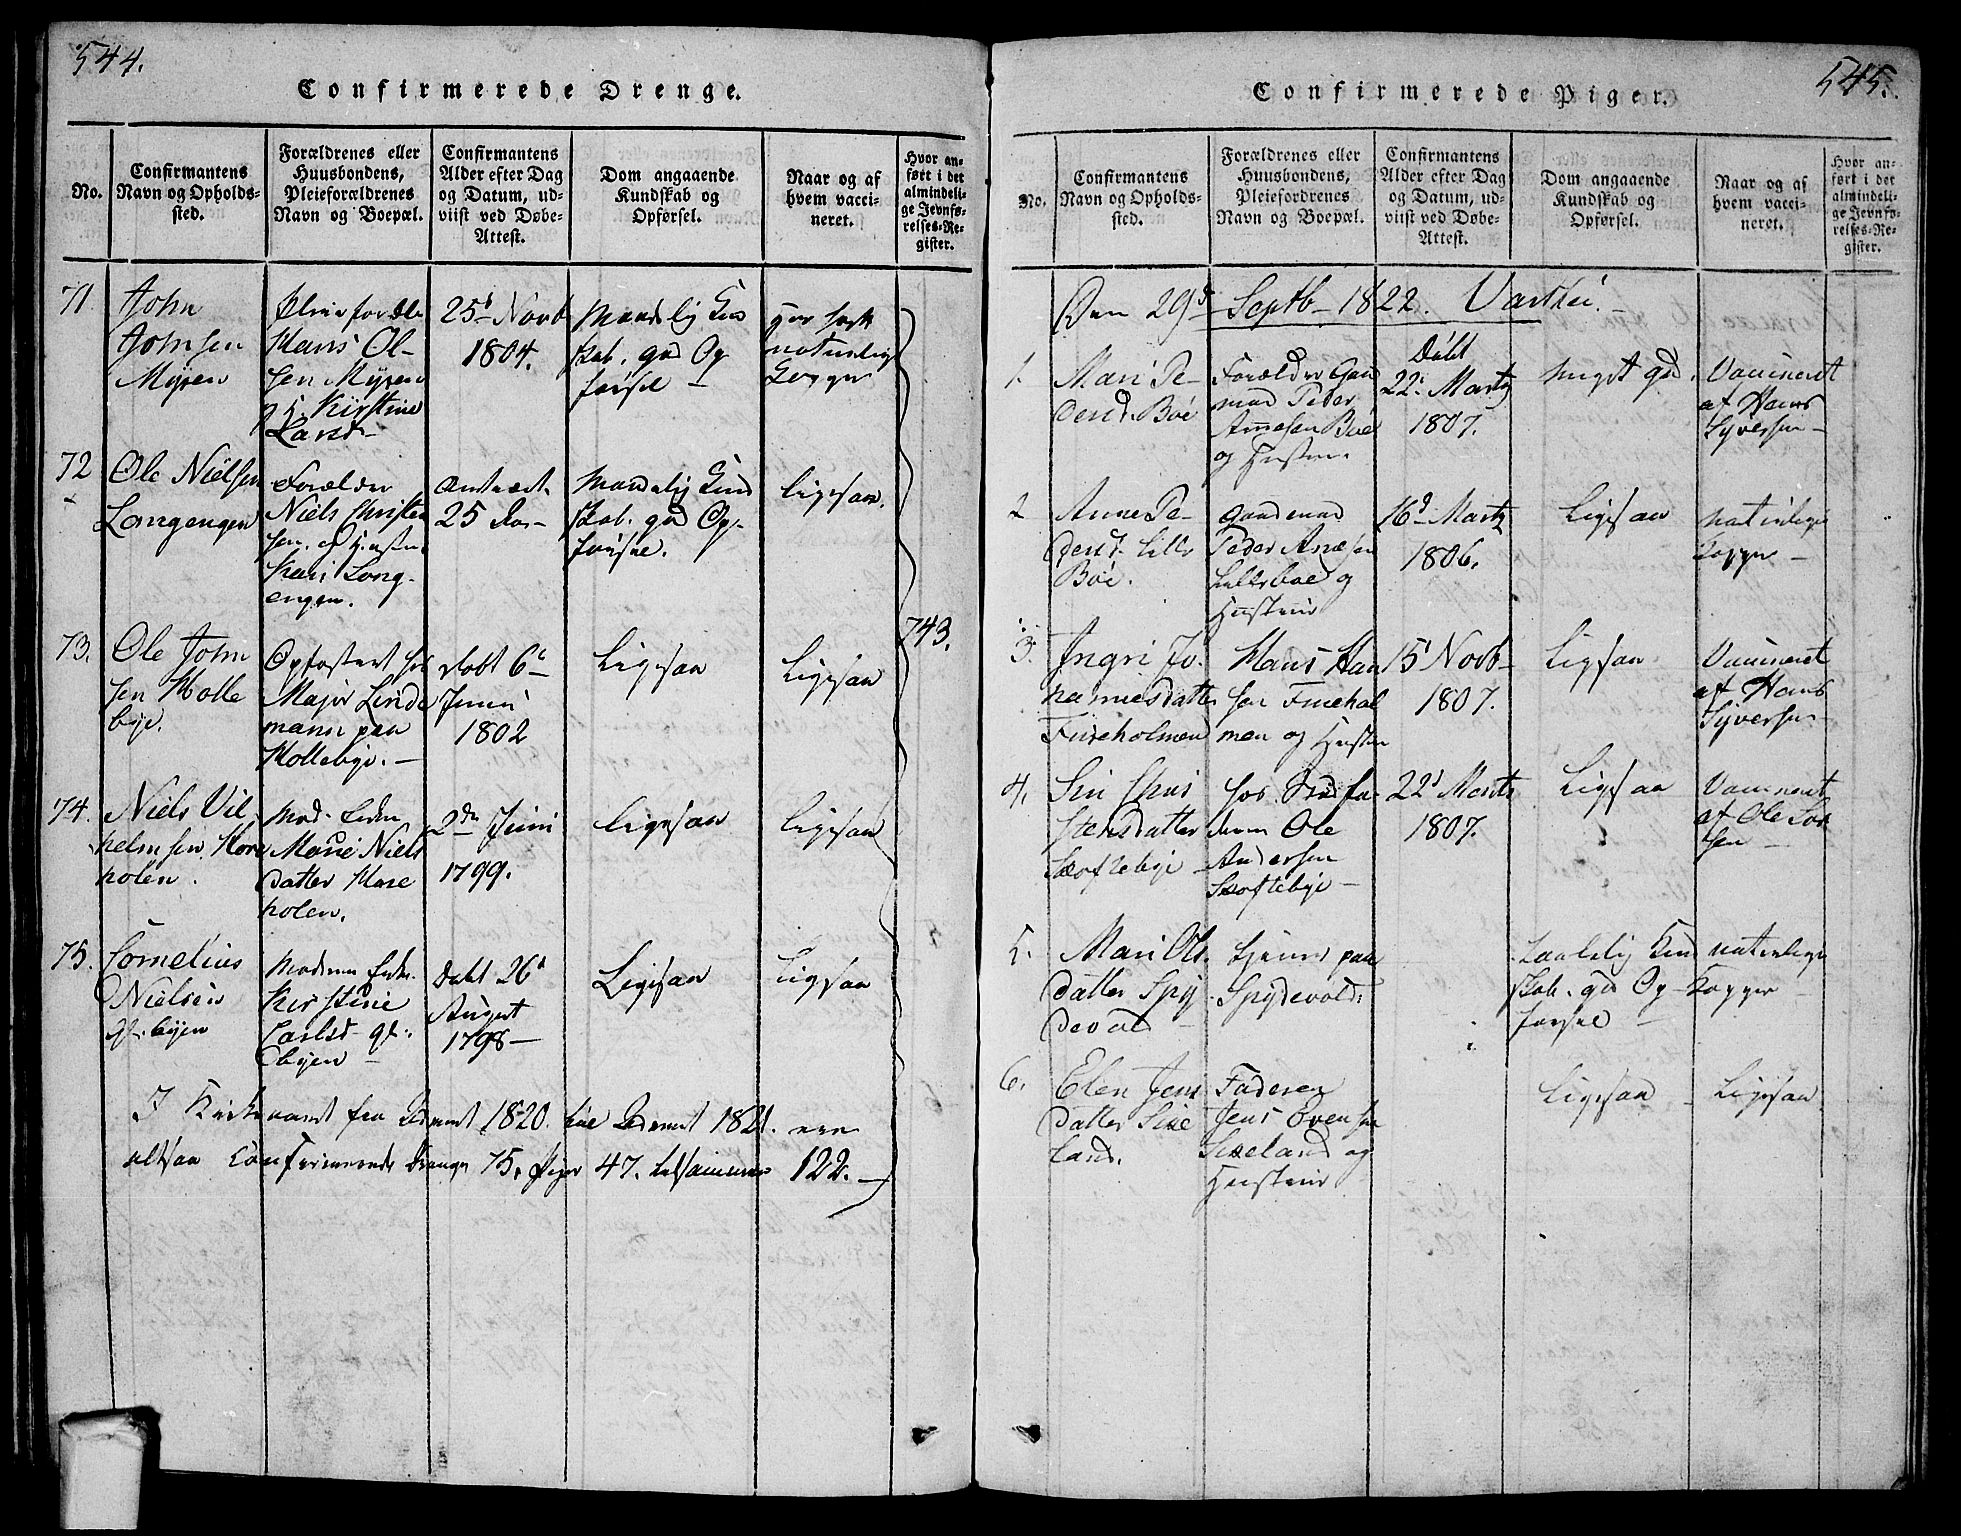 544.
Confirmerede Drenge.
No.
Confirmantens
Navn og Opholds-
sted.
Forældrenes eller
Huusbondens,
Pleieforældrenes
Navn og Boepæl.
Confirmantens
Alder efter Dag
og Datum, ud-
viist ved Døbe-
Attest.
Dom angaaende
Kundskab og
Opførsel.
Naar og af
hvem vacci-
neret.
Hvor an-
ført i det
almindeli-
ge Jevnfø-
relses-Re-
gister.
71
John
Johnsen
Mÿsen
Hans Ol-
sen Mÿsen
og K. Kirstine
Land
25d Novb
1804.
Maadelig Kun
skab. god Op
førsel –
naturlige
Kopper
72
Ole Nielsen
Langengen
Forælder
Niels Christen
sen og Hustru
Kari Lang-
engen.
25 Aar –
Maadelig Kund
skab. god Op-
førsel.
Ligesaa.
73.
Ole John
sen Holle
bye.
Opfostert hos
Major Linde
mann paa
Hollebye. –
Døbt 6te
Junii
1802
Ligesaa
Ligesaa
743.
74.
Niels Vil-
helmsen Hare
holen.
Mod. Enken
Marie Niels
datter Hare
holen.
2den Junii
1799.
Ligesaa
Ligesaa
75.
Cornelius
Nielsen
bÿen
Moderen Enke
Kirstine
Carlsd
bÿen –
Døbt 26d
August
1798 –
Ligesaa
Ligesaa
I Kirke aaret fra Advent 1820. til Advent 1821. ere
altsaa Confirmerede Drenge 75, Piger 47. tilsammen 122. –
545.
Confirmerede Piger.
No.
Confirmantens
Navn og Opholds-
sted.
Forældrenes eller
Huusbondens,
Pleiefordrenes
Navn og Boepæl.
Confirmantens
Alder efter Dag
og Datum, ud-
viist ved Døbe-
Attest.
Dom angaaende
Kundskab og
Opførsel.
Naar og af
hvem vacci-
neret.
Hvor an-
ført i det
almindeli-
ge Jevnfø-
relses-Re-
gister.
Den 29d Septb – 1822. Varteig. –
1.
Mari Pe-
dersd. Boe
Forælder Gaa
mand Peder
Arnesen Boe
og Hustru.
Døbt
22d Martz
1807.
meget god.
Vaccineret
af Hans
Syversen –
2
Anne Pe-
dersd. Lille
Boe.
Gaardmand
Peder Arnesen
Lilleboe og
Hustrue
16d Martz
1806.
Ligesaa
naturlige
Kopper –
3.
Ingri Jo-
hannesdatter
Furuholmen
Hans Han
sen Furuhol
men og Hustru
15d Novb –
1807.
Ligesaa
Vaccineret
af Hans
Syversen –
4.
Siri Chris
stensdatter
Skoftebye –
hos Stedfa-
deren Ole
Andersen
Skoftebye –
22d Martz
1807.
Ligesaa
Vaccineret
af Ole Lar
sen –
5.
Mari Ols.
datter Spÿ
devold –
tjener paa
Spydevold.
Taalelig Kund
skab. god Op-
førsel –
naturlige
Kopper –
6.
Elen Jens
datter Size
land.
Faderen
Jens Evensen
Sizeland og
Hustrue
Ligesaa –
Ligesaa